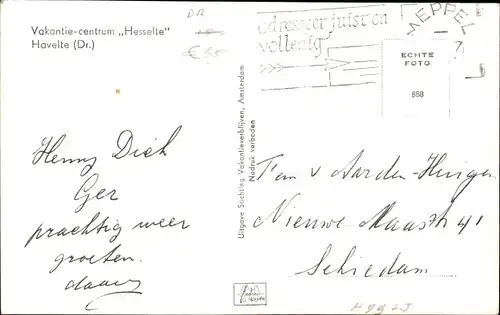 Vakantie-centrum „Hesselte"
Havelte (Dr.)
DR
€ 6.50
adresseer juist en
volledig
MEPPEL
ECHTE
FOTO
888
Uitgave Stichting Vakantieverblijven, Amsterdam
Nadruk verboden
Henny Dick
Ger
prachtig weer
groeten.
daag
Fam v Aarden-Huigen
Nieuwe Maasstr 41
Schiedam